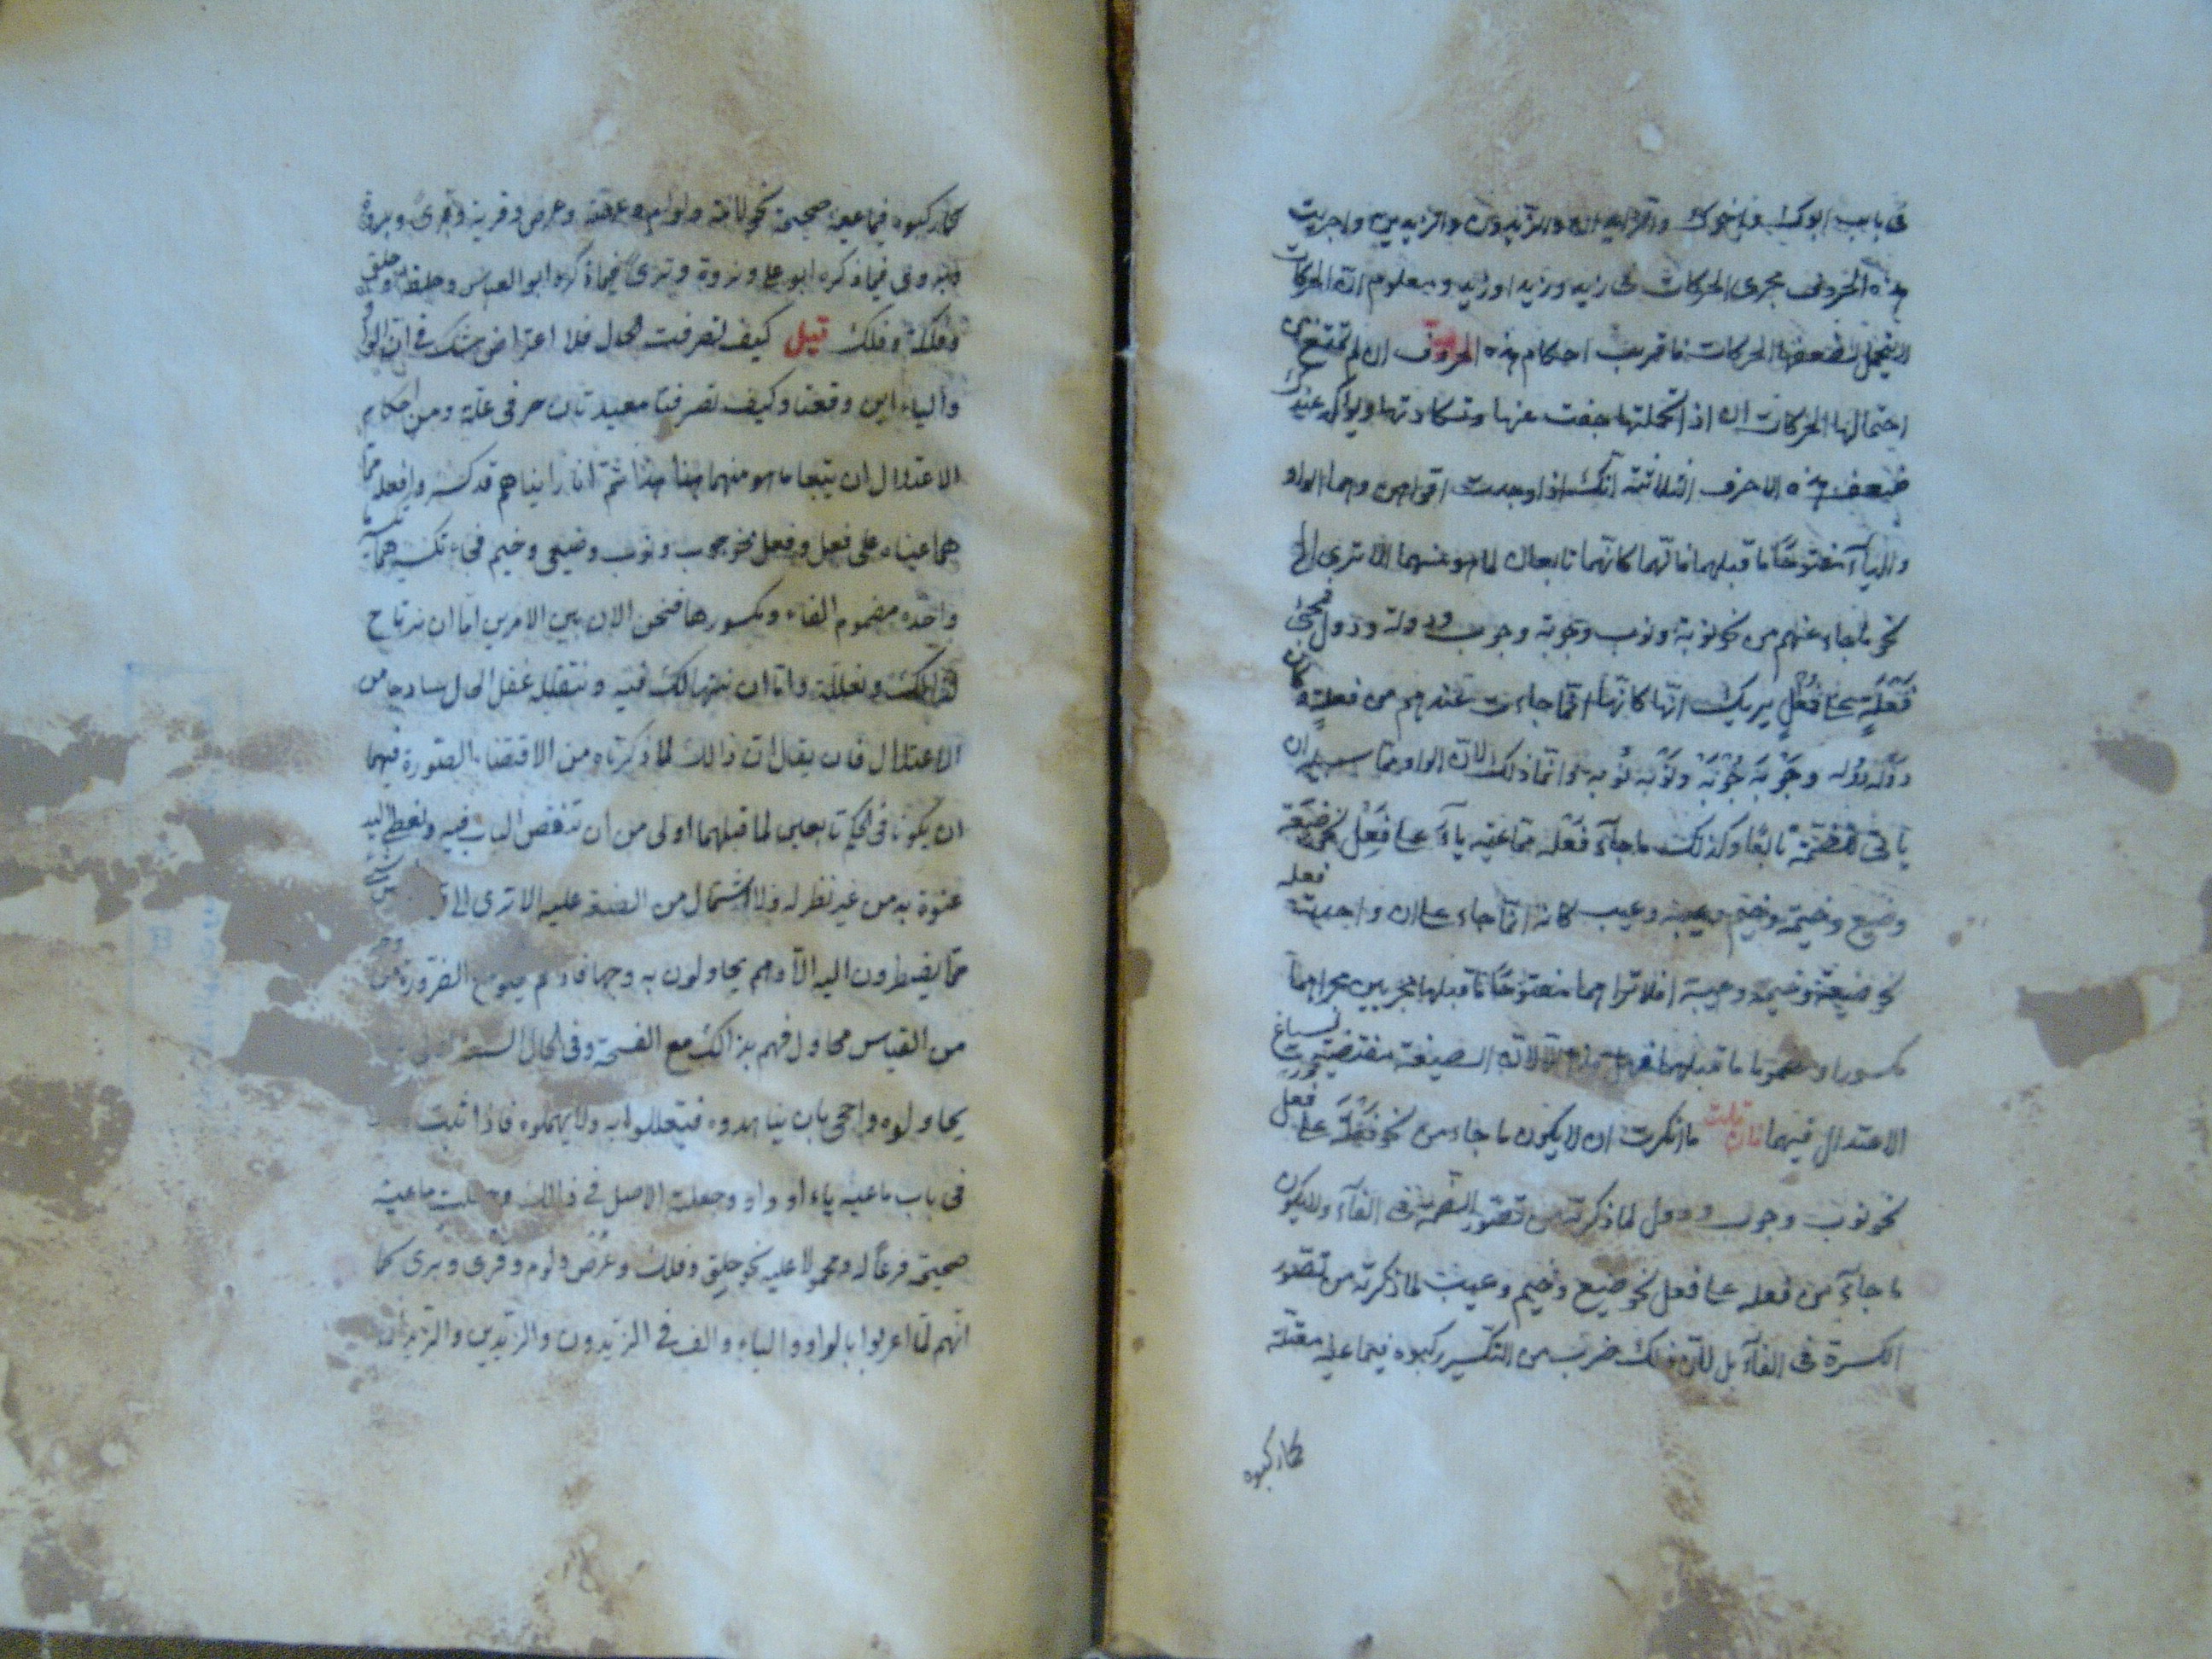 في باب ابوك واخوك والزيدان والزيدون والزيدين واجريت
هذه الحروف مجرى الحركات في زيد وزيدا وزيد ومعلوم ان الحركات
لا يتحمل لضعفها الحركات فاقرب احكام هذه الحروف ان لم تمتنع من
احتمالها الحركات ان اذا تحملتها جفت عنها وتكاءدتها ويؤكد عندك
ضعف هذه الاحرف الثلاثة انك اذا وجدت اقواهن وهما الواو
والياء مفتوحا ما قبلهما فانهما كانهما تابعان لما هو منهما الا ترى الى
نحو ما جاء عنهم من نحو نوبة ونوب وجوبة وجوب ودولة ودول فمجئ
فَعْلة على فُعَل يريك انها كانها انما جاءت عندهم من فعلة وكان
دولة دولة وجوبة جوبة ونوبة نوبة وانما ذلك لان الواو مما سبيله ان
ياتي للضمة تابعا وكذلك ما جاء فعلة مما عينه ياء على فعل نحو ضيعة
وضيع وخيمة وخيم وعيبة وعيب كانه انما جاء على ان واحدته فعلة
نحو ضيعة وخيمة وعيبة افلا تراهما مفتوحا ما قبلهما مجريين مجراهما
مكسورا او مضموما ما قبلهما فهل هذا الا لان الصيغة مقتضية لشياع
الاعتدال فيهما فان قلت ما انكرت ان لا يكون ما جاء من نحو فعلة على فعل
نحو نوب وجوب ودول لما ذكرته من تصور الضمة في الفاء ولا يكون
ما جاء من فعلة على فعل نحو ضيع وخيم وعيب لما ذكرته من تصور
الكسرة في الفاء بل لان ذلك ضرب من التكسير ركبوه فيما عينه معتلة
كما ركبوه
كما ركبوه فيما عينه صحيحة نحو لامة ولوام وعرصة وعرص وقرية وقرى وبروة
وبرى فيما ذكره ابو علي ونزوة ونزى فيما ذكره ابو العباس وحلقة وحلق
وفلكة وفلك قيل كيف تصرفت الحال فلا اعتراض شك في ان الواو
والياء اين وقعتا وكيف تصرفتا معتدتان حرفي علة ومن احكام
الاعتلال ان يتبعا ما هو منهما هذا ثم انا رايناهم قد كسروا فعلة مما
هما عيناه على فعل وفعل نحو جوب ونوب وضيع وخيم فجاء تكسيرهما تكسير ما
واحده مضموم الفاء ومكسورها فنحن الان بين الامرين اما ان نرتاح
لذلك ونعلله واما ان نتهالك فيه ونتقبله غفل الحال ساذجا من
الاعتلال فان يقال ان ذلك لما ذكرناه من اقتضاء الصورة فيهما
ان يكونا في الحكم تابعين لما قبلهما اولى من ان ننقض الباب فيه ونعطي اليد
عنوة به من غير نظر له ولا اشتمال من الصنعة عليه الا ترى الى
مما يضطرون اليه الا وهم يحاولون به وجها فاذا لم يخل مع الضرورة من وجه
من القياس محاول فهم بذلك مع الفسحة وفي الحال السعة
يحاولوه واحجى بان يناهدوه فيتعللوا به ولا يهملوه فاذا ثبت
في باب ما عينه ياء او واو وجعلته الاصل في ذلك وجعلت ما عينه
صحيحة فرعا له ومحمولا عليه نحو حلق وفلك وعرص ولوم وقرى وبرى كما
انهم لما اعربوا بالواو والياء والالف في الزيدون والزيدين والزيدان